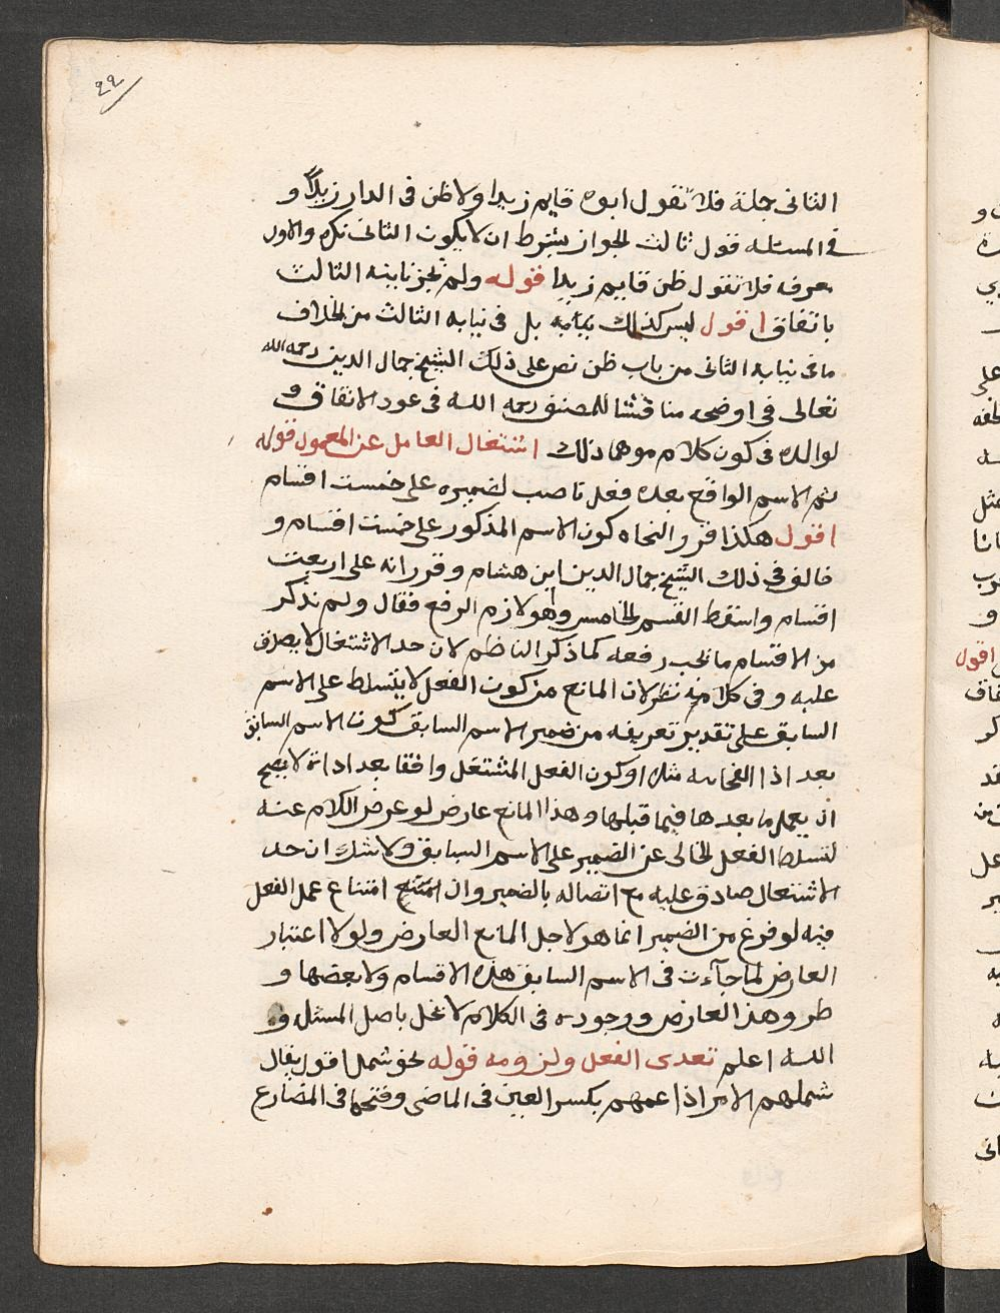 ٢٢
الثانى جملة فلا تقول ابوه قايم زيدا ولا ظن فى الدار زيدا و
فى المسئله قول ثالث الجواز بشرط ان لا يكون الثانى نكره والاول
معرفه فلا تقول ظن قاييم زيدا قوله ولم تجز نيابته الثالث
باتفاق اقول ليس كذلك نيابه بل فى نيابه الثالث من الخلاف
ما فى نيابه الثانى من باب ظن نص على ذلك الشيخ جمال الدين رحمه الله
تعالى فى اوضحه مناقشا للمصنف رحمه الله فى عود الاتفاق و
لوالده فى كون كلام موهما ذلك اشتغال العامل عن المعمول قوله
ثم الاسم الواقع بعده فعل ناصب لضميره على خمست اقسام
اقول هكذا قرر النحاه كون الاسم المذكور على خمست اقسام و
خالف فى ذلك الشيخ جمال الدين ابن هشام وقرر انه على اربعت
اقسام واسقط القسم الخامس وهو لازم الرفع فقال ولم نذكر
من الاقسام ما يجب رفعه كما ذكر الناظم لان حد الاشتغال لا يصدق
عليه وفى كلامه نظر لان المانع من كون الفعل لا يتسلط على الاسم
السابق على تقدير تعريفه من ضمير الاسم السابق كون الاسم السابق
بعد اذا الفجائيه مثلا او كون الفعل المشتغل واقفا بعد اداة لا يصح
ان يعمل ما بعدها فيما قبلها وهذا المانع عارض لو عرض الكلام عنه
لتسلط الفعل الخالى عن الضمير على الاسم السابق ولا شك ان حد
الاشتعال صادق عليه مع اتصاله بالضمير وان امتنع امتناع عمل الفعل
فيه لو فرغ من الضمير انما هو لاجل المانع العارض ولولا اعتبار
العارض لما جآءت فى الاسم السابق هذه الاقسام ولا بعضها و
طرو هذا العارض ووجوده فى الكلام لا يخل باصل المسئله و
الله اعلم تعدى الفعل ولزومه قوله نحو شمل اقول يقال
شملهم الامر اذا عمهم بكسر العين فى الماضى وفتحها فى المضارع